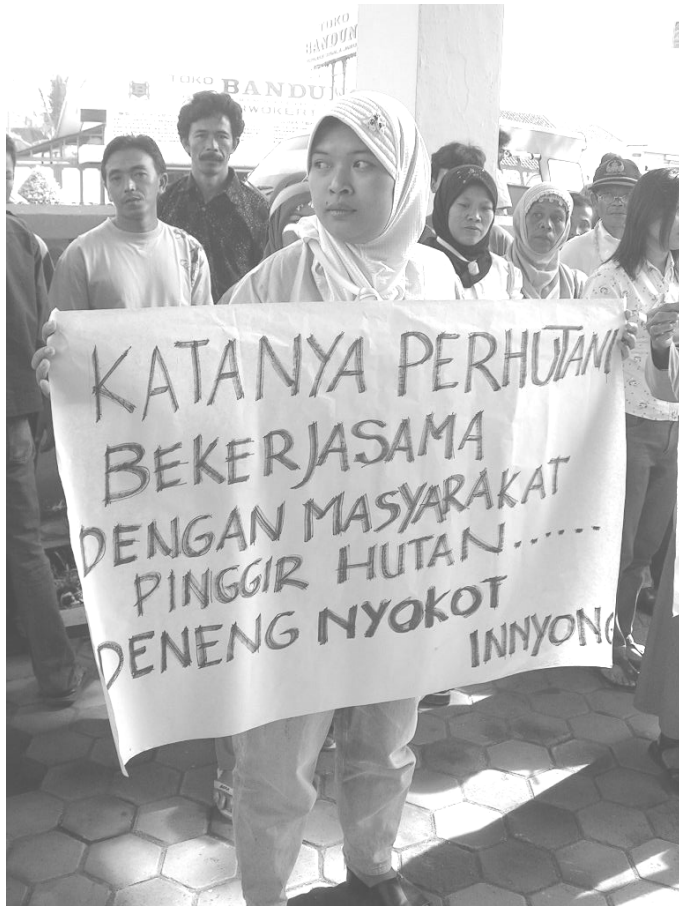 TOKO
BANDUN
TOKO BANDUN
KATANYA PERHUTANI
BEKERJASAMA
DENGAN MASYARAKAT
PINGGIR HUTAN......
DENENG NYOKOT
INNYONG